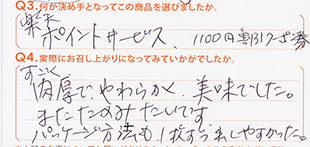 Q3.何が決め手となってこの商品を選びましたか。
楽天
ポイントサービス、1100円割引クーポン券
Q4.実際にお召し上がりになってみていかがでしたか。
すごく
肉厚で、やわらかく、美味でした。
またたのみたいです
パッケージ方法も1枚ずつ出しやすかった。